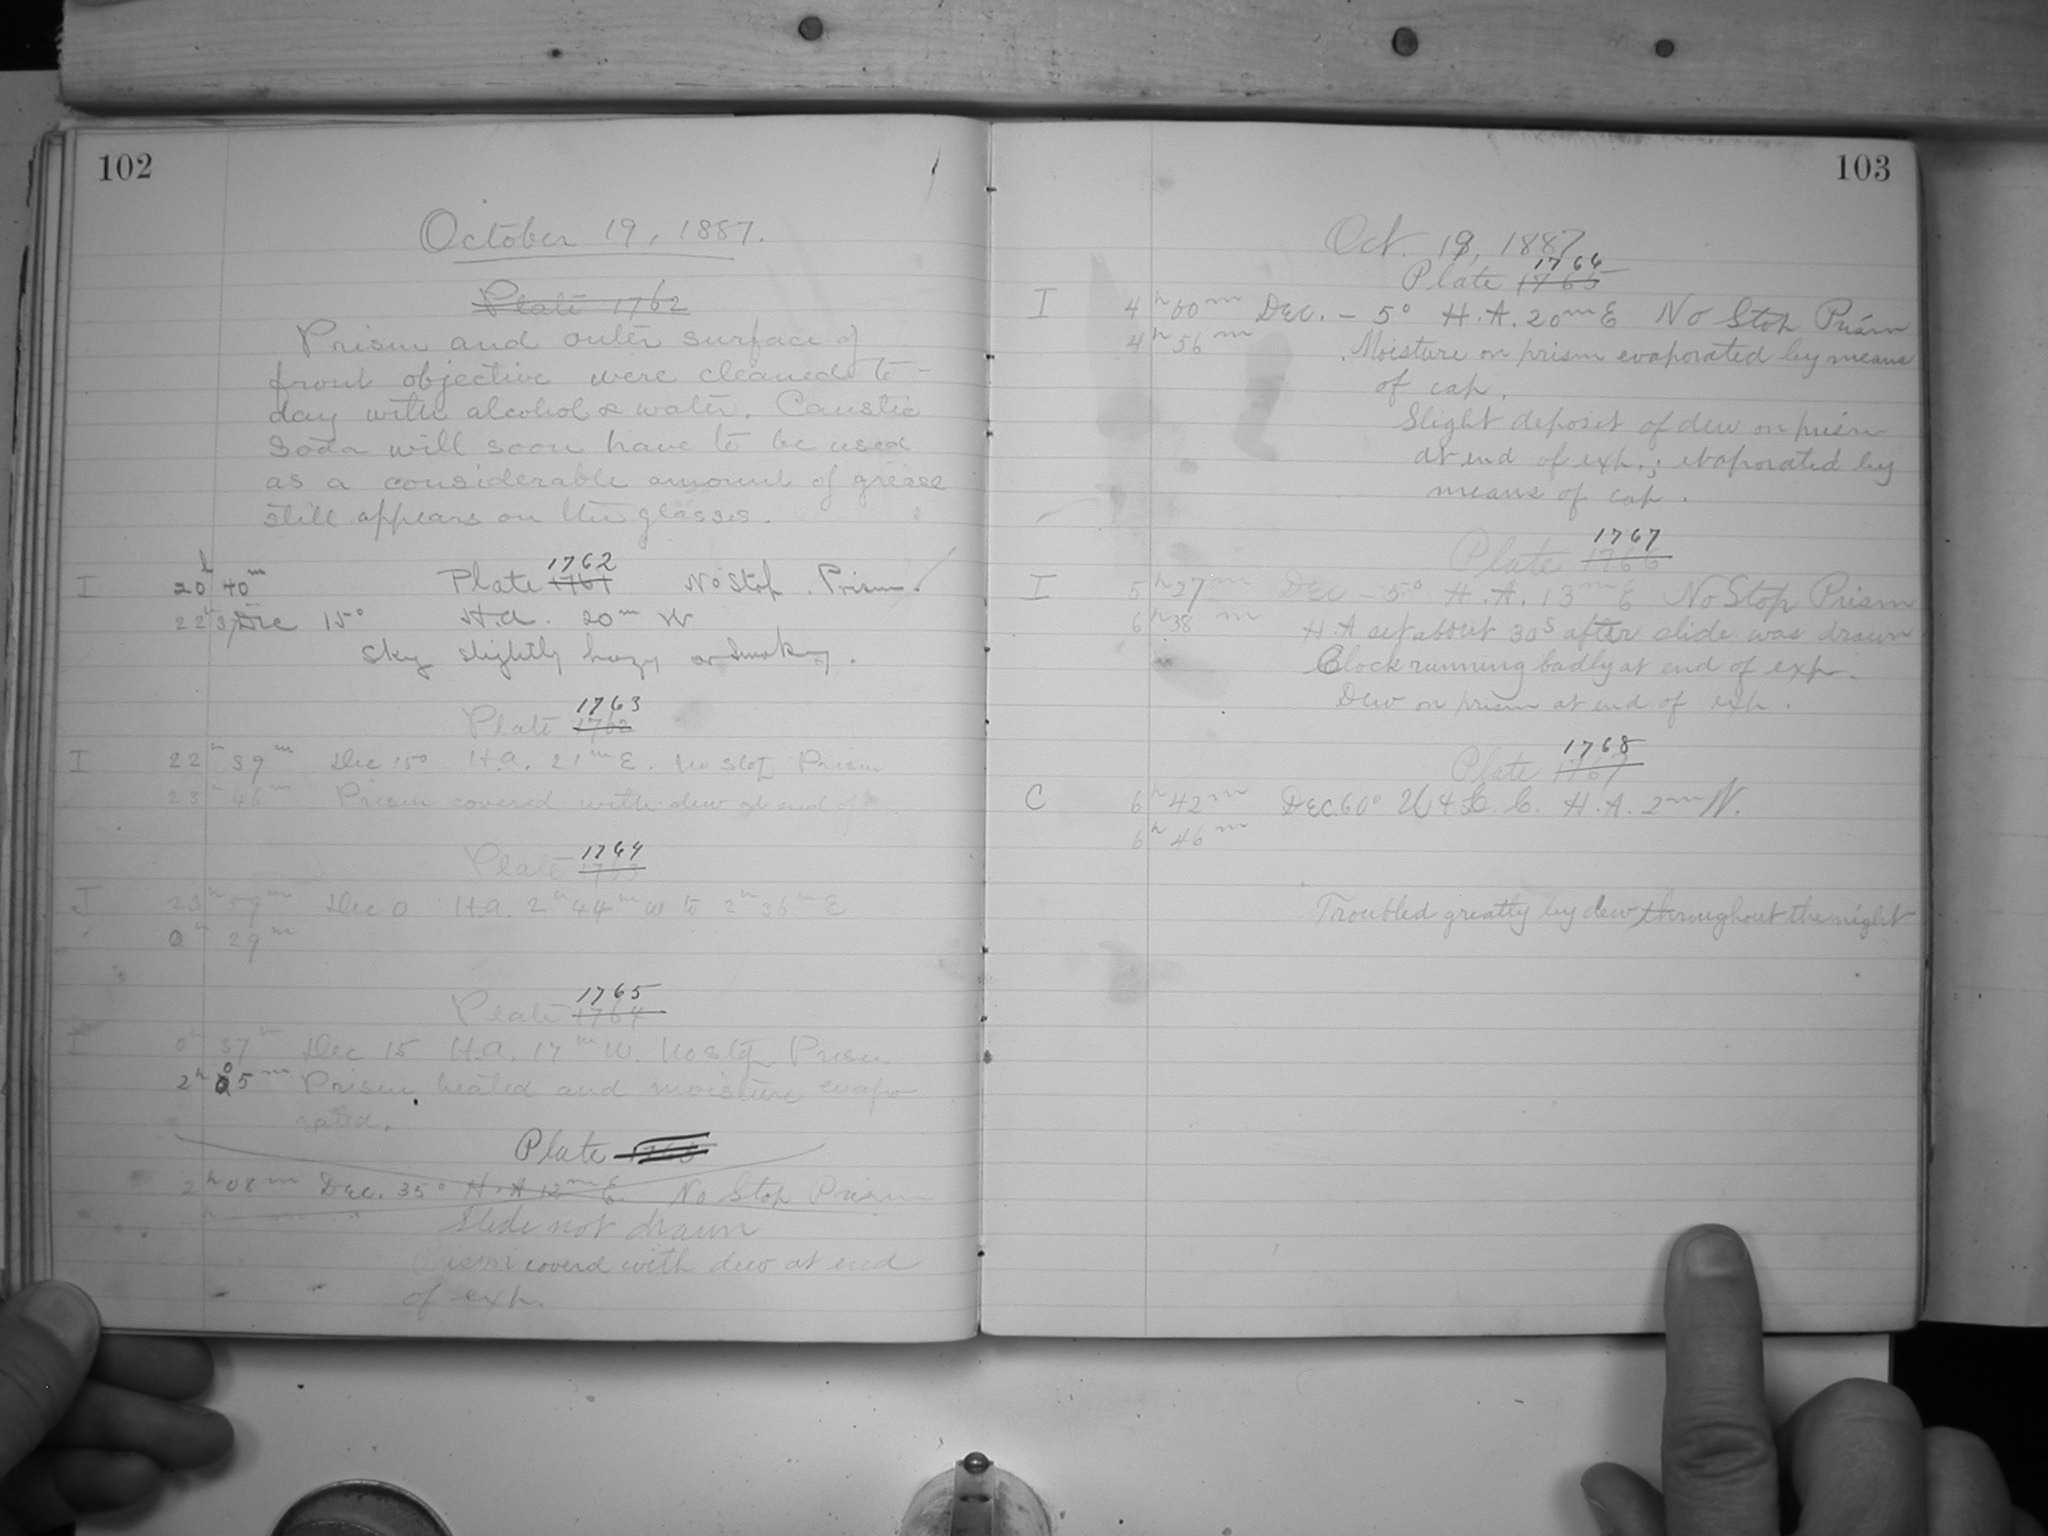 102
October 19, 1887.
Plate 1762
Prism and outer surface of
front objective were cleaned to-
day with alcohol & water. Caustic
Soda will soon have to be used
as a considerable amount of grease
still appears on the glasses.
1762
I 20h 40m Plate 1761 No Stop. Prism.
22h 37 Dec 15° H.a. 20m W
Sky slightly hazy or smoky.
1763
Plate 1762
I 22h 39m Dec 15° H.a. 21m E. No stop Prism
23h 46m Prism covered with dew at end of
1764
Plate 1763
I 23h 59m Dec 0 H.a. 2h 44m W to 2h 36m E
0h 29m
1765
Plate 1764
I 0h 37m Dec 15 H.a. 17m W. No stop Prism
2h 05m Prism heated and moisture evapo
rated.
Plate
2h 08m Dec. 35° H.A 12m E. No Stop Prism
Slide not drawn
Prism coverd with dew at end
of exp.
103
Oct. 19, 1887
1766
Plate 1765
I 4h 00m Dec. - 5° H.A. 20m E No Stop Prism
4h 56m Moisture on prism evaporated by means
of cap.
Slight deposit of dew on prism
at end of exp.; evaporated by
means of cap.
1767
Plate 1766
I 5h 27m Dec - 5° H.A. 13m E No Stop Prism
6h 38m H.A set about 30s after slide was drawn
Clock running badly at end of exp.
Dew on prism at end of exp.
1768
Plate 1767
C 6h 42m Dec. 60° U & L. C. H.A. 2m W.
6h 46m
Troubled greatly by dew throughout the night